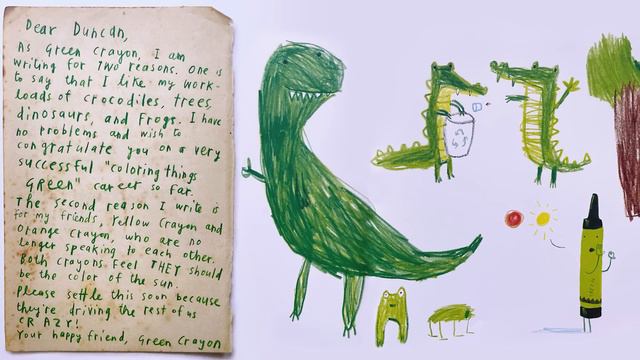 Dear Duncan,
As Green Crayon, I am
writing for two reasons. One is
to say that I like my work-
loads of crocodiles, trees,
dinosaurs, and frogs. I have
no problems and wish to
congratulate you on a very
successful "coloring things
GREEN" career so far.
The second reason I write is
for my friends, Yellow Crayon and
Orange Crayon, who are no
longer speaking to each other.
Both crayons feel THEY should
be the color of the sun.
Please settle this soon because
they're driving the rest of us
CRAZY!
Your happy friend, Green Crayon